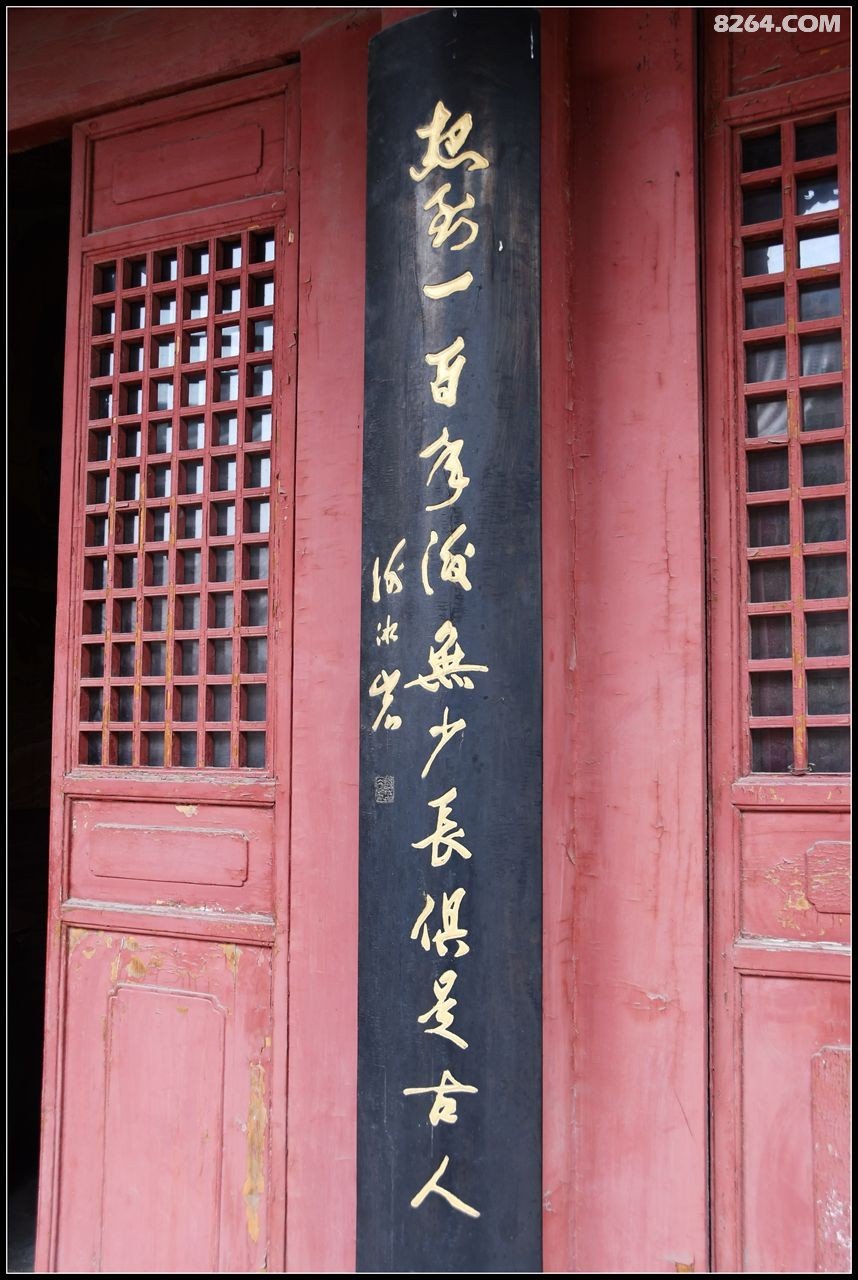 8264.COM
想到一百年後無少長俱是古人